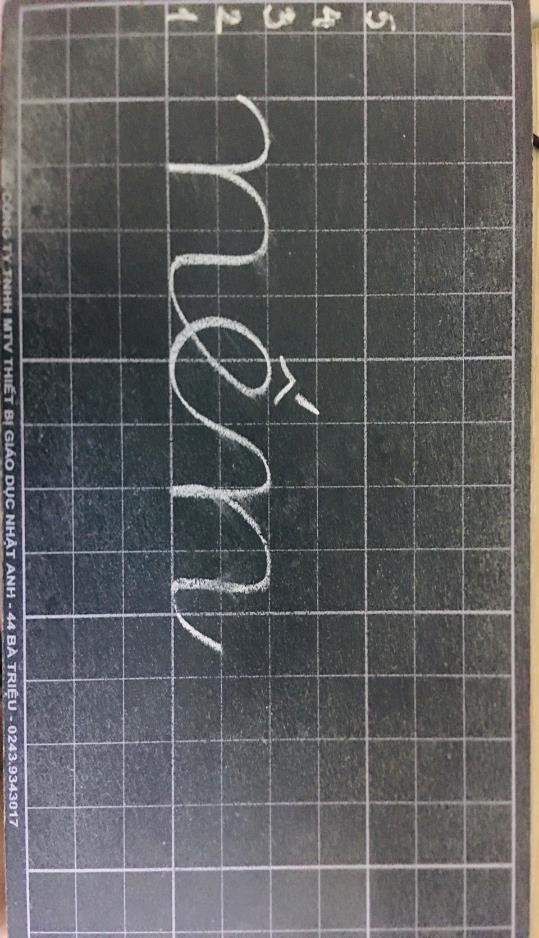 5
4
3
2
1
nến
CÔNG TY TNHH MTV THIẾT BỊ GIÁO DỤC NHẬT ANH - 44 BÀ TRIỆU - 0243.9343017